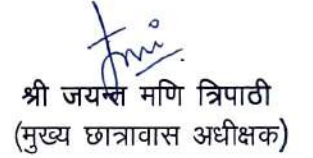 श्री जयन्त मणि त्रिपाठी
(मुख्य छात्रावास अधीक्षक)